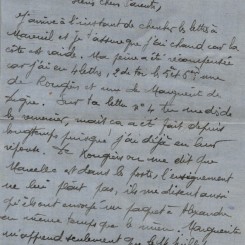 Bien chers parents,
J'arrive à l'instant de chercher les lettres à
Mareuil et je t'assure que j'ai chaud car la
côte est raide. Ma peine a été récompensée
car j'ai eu 4 lettres, 2 de toi
de Rougès et une de Marguerite de
Sur ta lettre n° 4 tu me dis de
les remercier, mais ça a été fait depuis
longtemps puisque j'ai déjà eu leur
réponse. Le Rougès me dit que
Marcelle est dans le poste, l'enseignement
ne lui plait pas, ils me disent aussi
qu'ils ont envoyé un paquet à
en même temps que le mien. Marguerite
m'apprend seulement que